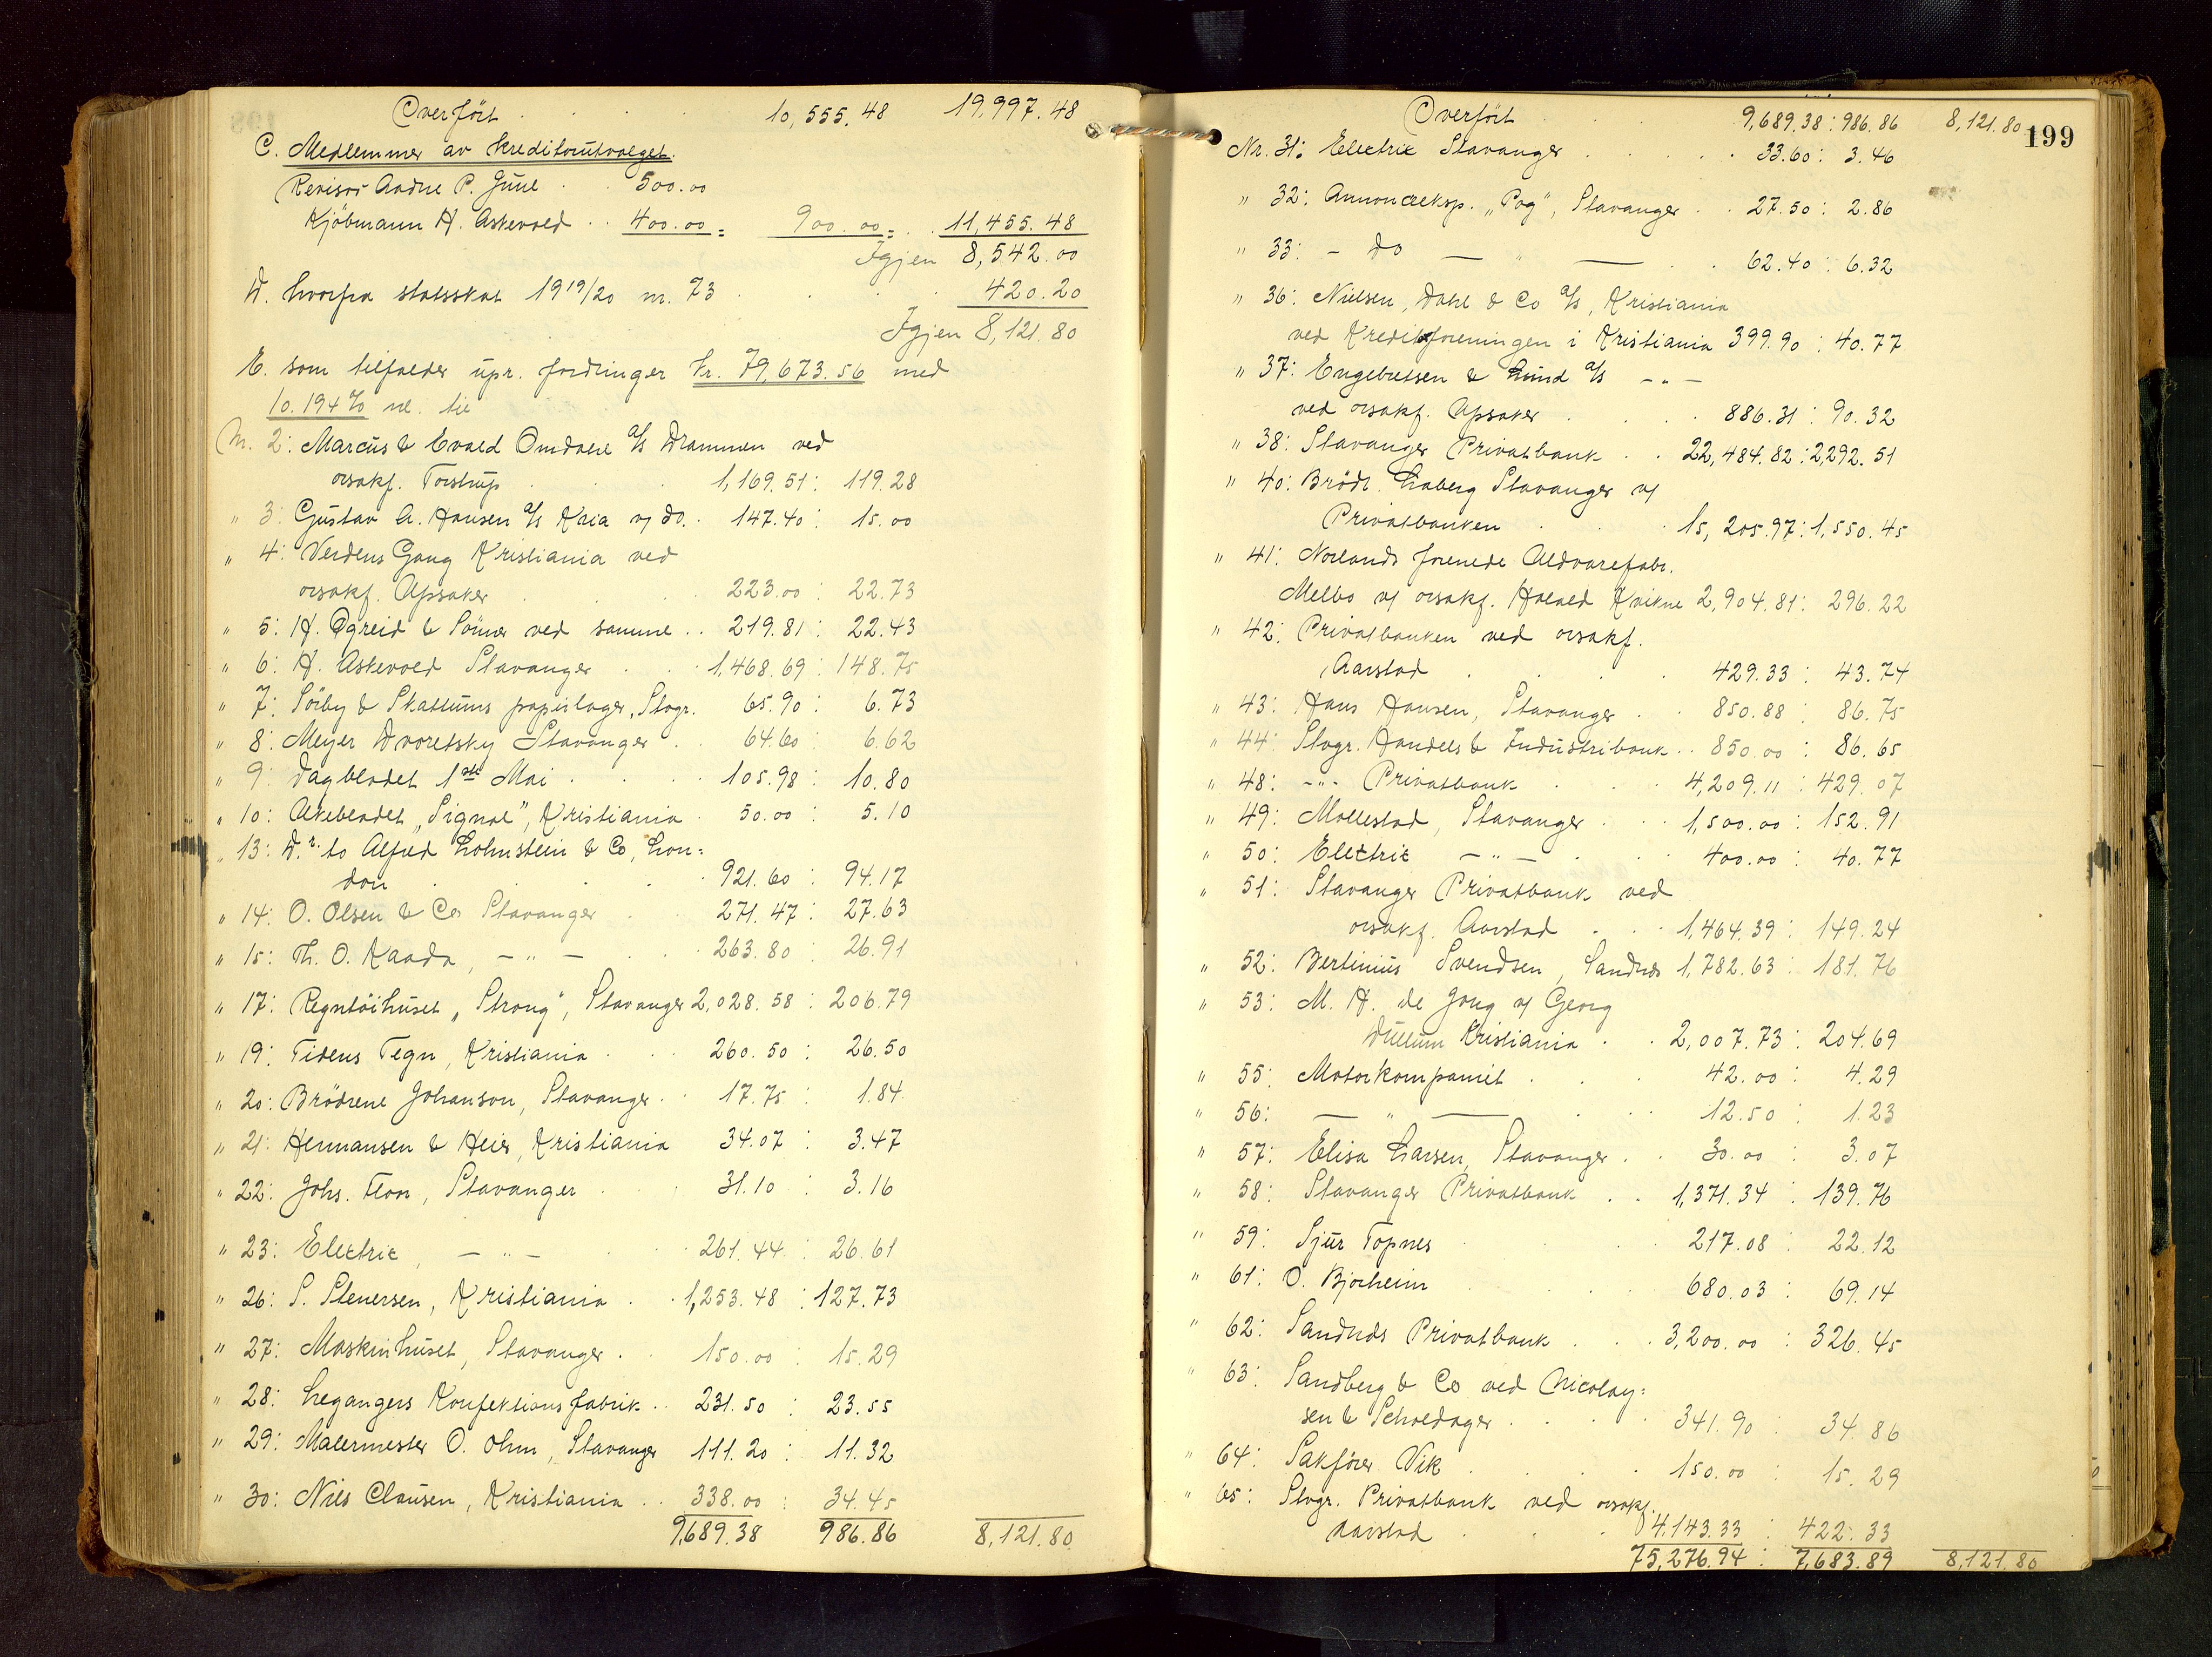 Overført 10,555.48 19.997.48
C. Medlemmer av kreditorutvalget.
Revisor Andne P. Juul 500.00
Kjøbmann H. Askevold 400.00 = 900.00 = 11,455.48
Igjen 8,542.00
D. hvorfra statsskat 1919/20 nr. 73 420.20
Igjen 8,121.80
E. som tilfalder upr. fordringer kr. 79,673.56 med
10.194% nl. til
Nr. 2: Marcus & Evald Omdahl a/s Drammen ved
orsakf. Torstrup 1,169.51 : 119.28
" 3: Gustav A. Hansen a/s Kria v/ do. 147.40 : 15.00
" 4: Verdens Gang Kristiania ved
orsakf. Opsaker 223.00 : 22.73
" 5: H. Øgreid & Sömer ved samme 219.81 : 22.43
" 6: H. Askevold Stavanger 1,468.69 : 148.75
" 7: Sörby & Skattums papirlager, Stvgr. 65.90 : 6.73
" 8: Meyer Dvoretsky Stavanger 64.60 : 6.62
" 9: Dagbladet 1ste Mai 105.98 : 10.80
" 10: Ukebladet "Signal", Kristiania 50.00 : 5.10
" 13: D.r to Alfred Lohnstein & Co, Lon=
don 921.60 : 94.17
" 14: O. Olsen & Co Stavanger 271.47 : 27.63
" 15: Th. O. Kaada, - " - 263.80 : 26.91
" 17: Regntöihuset "Strong", Stavanger 2,028.58 : 206.79
" 19: Tidens Tegn, Kristiania 260.50 : 26.50
" 20: Brödrene Johanson, Stavanger 17.75 : 1.84
" 21: Hermansen & Heier, Kristiania 34.07 : 3.47
" 22: Johs. Floor, Stavanger 31.10 : 3.16
" 23: Electric, - " - 261.44 : 26.61
" 26: S. Stenersen, Kristiania 1,253.48 : 127.73
" 27: Maskinhuset, Stavanger 150.00 : 15.29
" 28: Legangers Konfektionsfabrik 231.50 : 23.55
" 29: Malermester O. Ohm, Stavanger 111.20 : 11.32
" 30: Nils Clausen, Kristiania 338.00 : 34.45
9,689.38 986.86 8,121.80
199
Overført 9,689.38 : 986.86 8,121.80
Nr. 31: Electric Stavanger 33.60 : 3.46
" 32: Annonceeksp. "Pog", Stavanger 27.50 : 2.86
" 33: - do - " - 62.40 : 6.32
" 36: Nielsen, Dahl & Co a/s, Kristiania
ved Kreditforeningen i Kristiania 399.90 : 40.77
" 37: Engebretsen & Lund a/s - " -
ved orsakf. Opsaker 886.31 : 90.32
" 38: Stavanger Privatbank 22,484.82 : 2,292.51
" 40: Brödr. Laberg Stavanger v/
Privatbanken 15,205.97 : 1,550.45
" 41: Norlands forenede Uldvarefabr.
Melbo v/ orsakf. Halvld Kvikne 2,904.81 : 296.22
" 42: Privatbanken ved orsakf.
Aarstad 429.33 : 43.74
" 43: Hans Hansen, Stavanger 850.88 : 86.75
" 44: Stvgr. Handels & Industribank 850.00 : 86.65
" 48: - " - Privatbank 4,209.11 : 429.07
" 49: Mollestad, Stavanger 1,500.00 : 152.91
" 50: Electric - " - 400.00 : 40.77
" 51: Stavanger Privatbank ved
orsakf. Aarstad 1,464.39 : 149.24
" 52: Bertinius Svendsen, Sandnes 1,782.63 : 181.76
" 53: M. H. de Jong v/ Georg
Dullum Kristiania 2,007.73 : 204.69
" 55: Motorkompaniet 42.00 : 4.29
" 56: - " - 12.50 : 1.23
" 57: Elisa Larsen, Stavanger 30.00 : 3.07
" 58: Stavanger Privatbank 1,371.34 : 139.76
" 59: Sjur Topnes 217.08 : 22.12
" 61: O. Bjorheim 680.03 : 69.14
" 62: Sandnes Privatbank 3,200.00 : 326.45
" 63: Sandberg & Co ved Nicolay=
sen & Scheldager 341.90 : 34.86
" 64: Sakförer Vik 150.00 : 15.29
" 65: Stvgr. Privatbank ved orsakf.
Aarstad 4,143.33 : 422.33
75,276.94 : 7,683.89 8,121.80